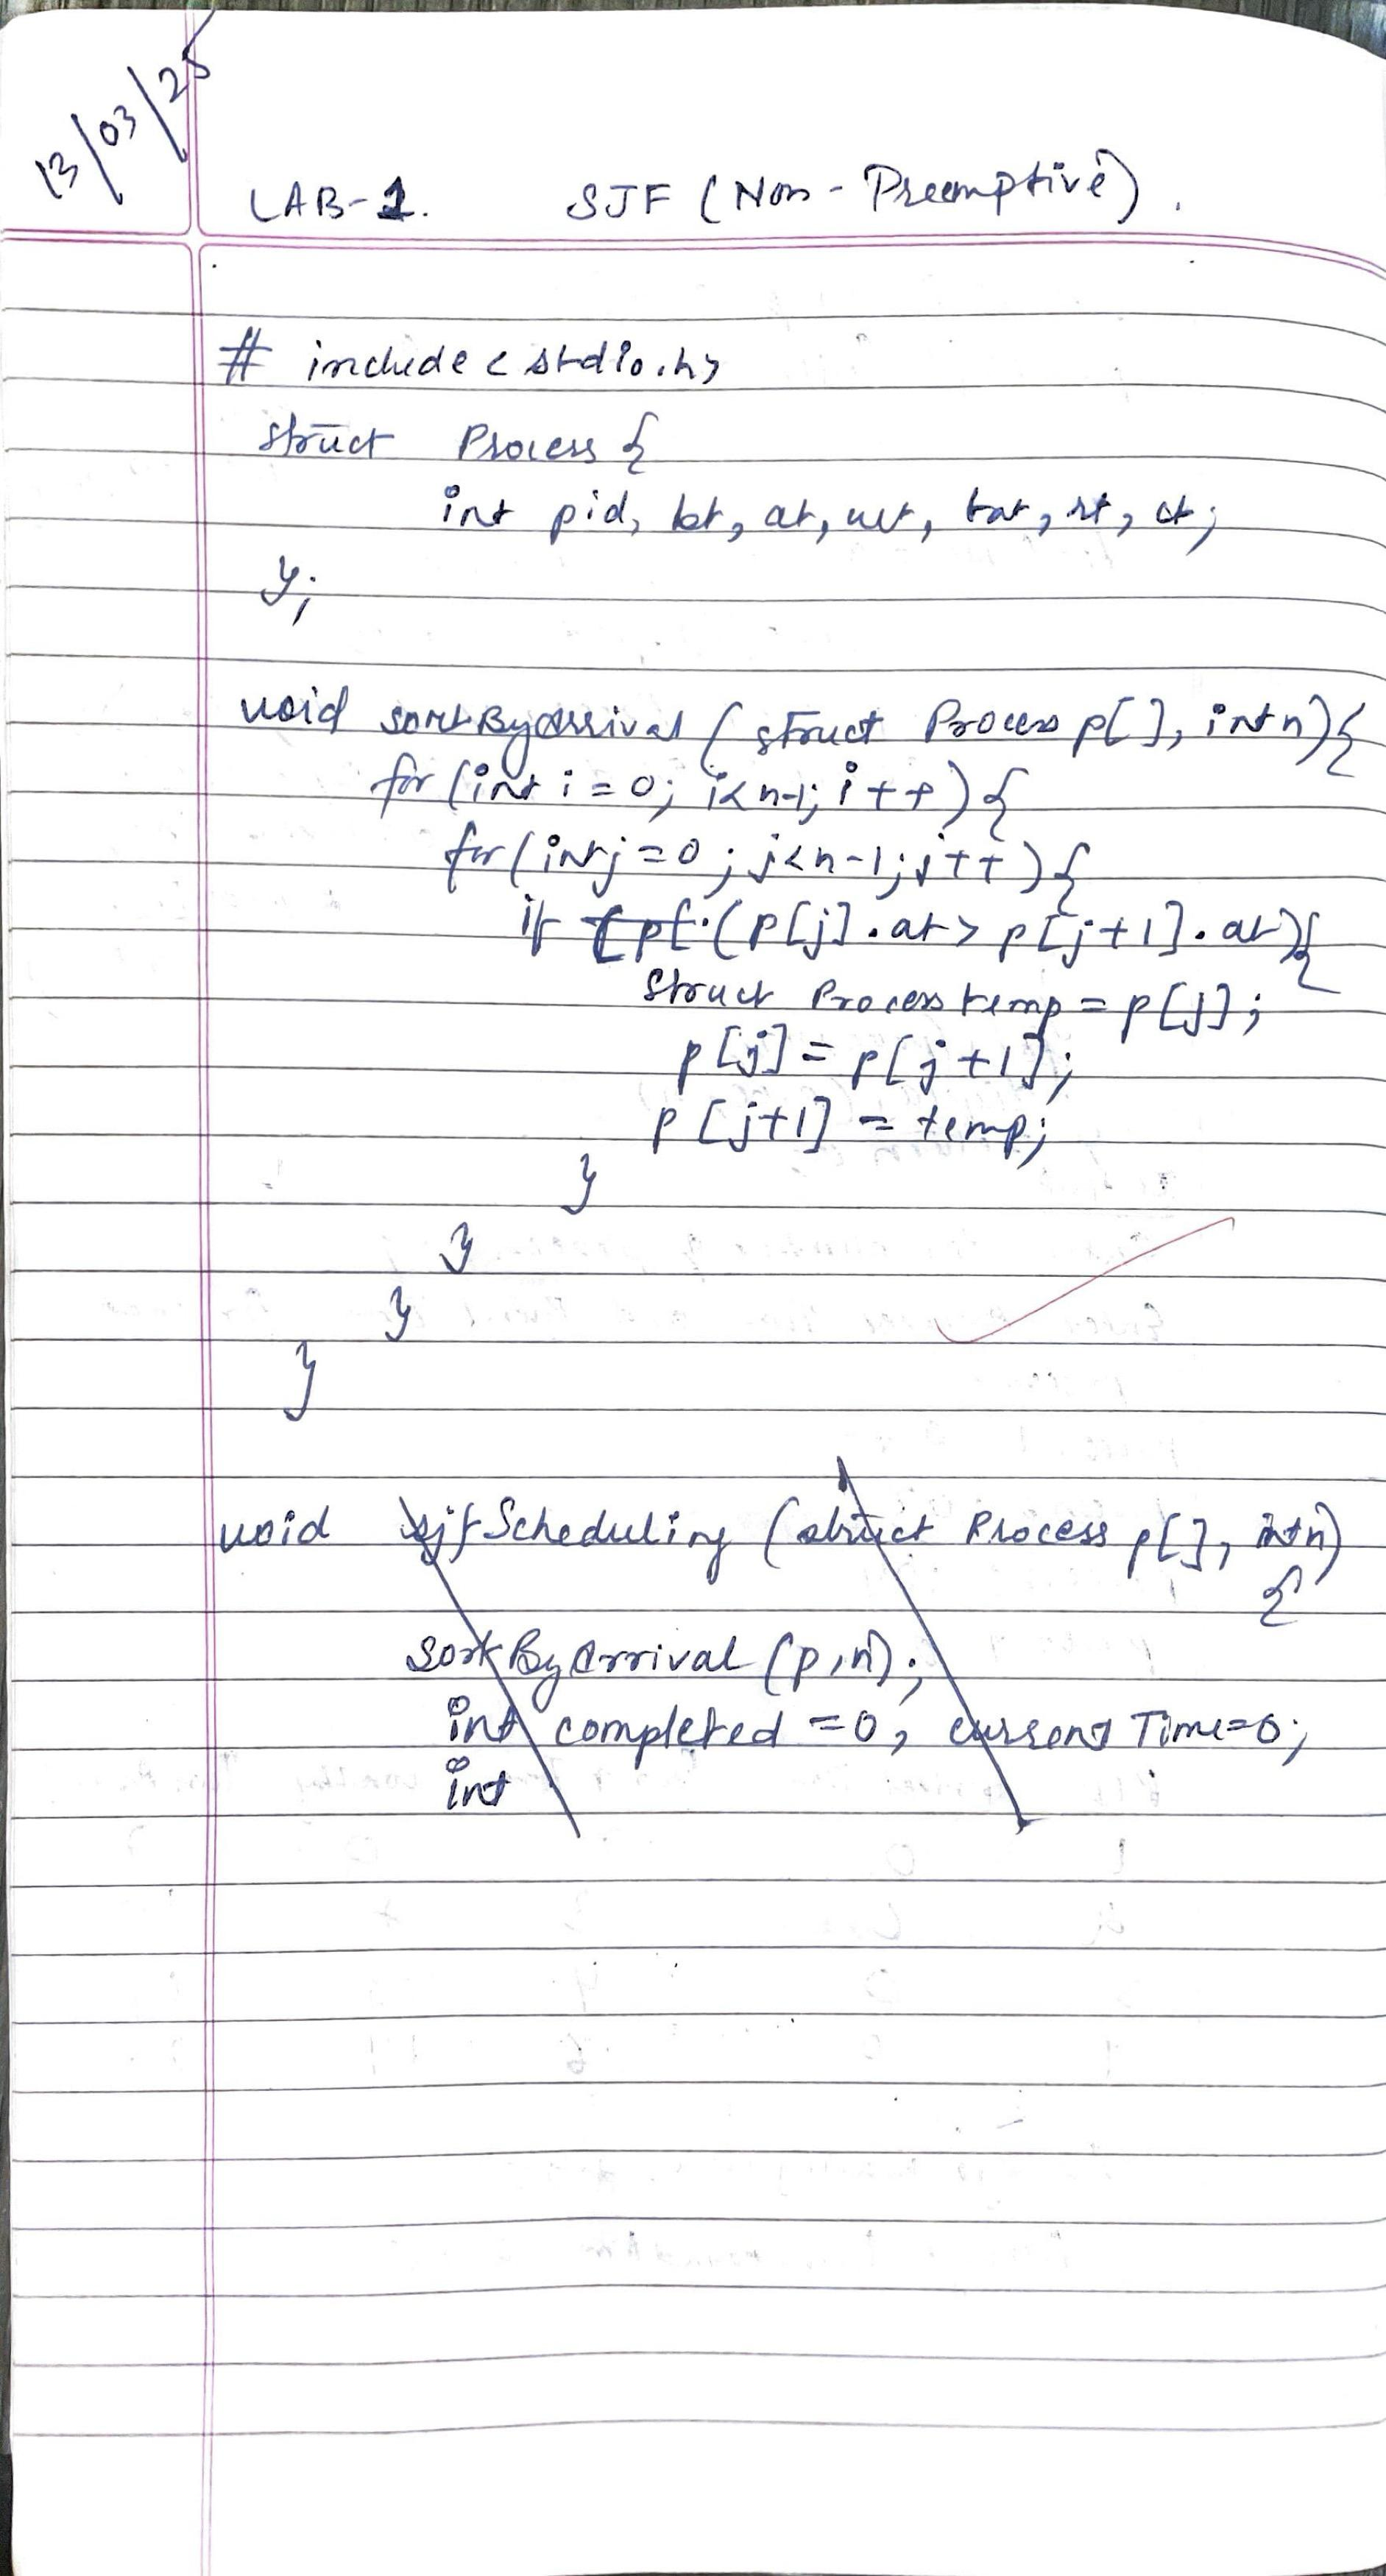 13/03/25
LAB-1. SJF (Non-Preemptive).
# include <stdio.h>
struct Process {
int pid, bt, at, wt, tat, rt, ct;
};
void sortByArrival (struct Process p[], int n){
for (int i = 0; i<n-1; i++) {
for (int j=0; j<n-1; j++) {
if (p[j].at > p[j+1].at){
struct Process temp = p[j];
p[j] = p[j+1];
p[j+1] = temp;
}
}
}
}
void sjfScheduling (struct Process p[], int n)
{
sortByArrival (p,n);
int completed =0, current Time=0;
int